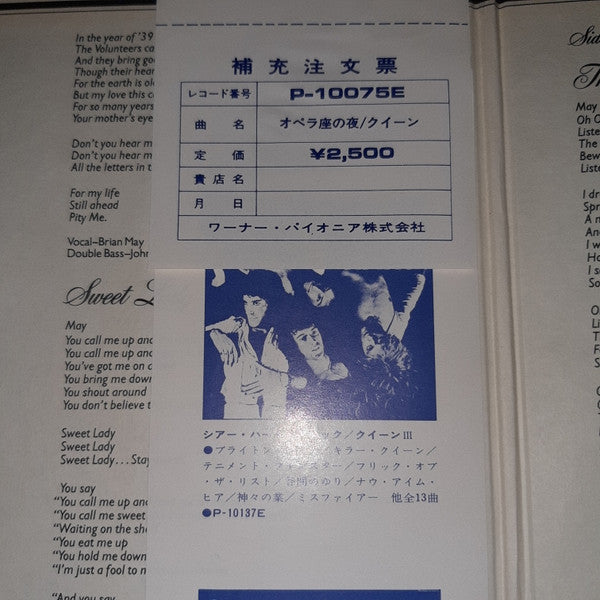 In the year of '39
The Volunteers ca
And they bring go
Though their hear
For the earth is ol
But my love this c
For so many years
Your mother's eye
Don't you hear m
Don't you hear m
All the letters in t
For my life
Still ahead
Pity Me.
Vocal–Brian May
Double Bass–John
Sweet
May
You call me up and
You call me up and
You've got me on a
You bring me down
You shout around
You don't believe t
Sweet Lady
Sweet Lady
Sweet Lady...Stay
You say
"You call me up and
"You call me sweet
"Waiting on the sh
"You eat me up
"You hold me down
"I'm just a fool to n
"And you say
補充注文票
レコード番号 P-10075E
曲名 オペラ座の夜/クイーン
定価 ¥2,500
貴店名
月日
ワーナー・パイオニア株式会社
シアー・ハー ック/クイーンIII
●ブライトン キラー・クイーン/
テニメント・ スター/フリック・オブ
・ザ・リスト/谷間のゆり/ナウ・アイム・
ヒア/神々の業/ミスファイアー 他全13曲
●P-10137E
Sid
Th
May
Oh O
Liste
Liste
The
Bew
Liste
I dr
Spr
A n
And
I w
Ho
I s
So
O
Li
Th
Fo
S